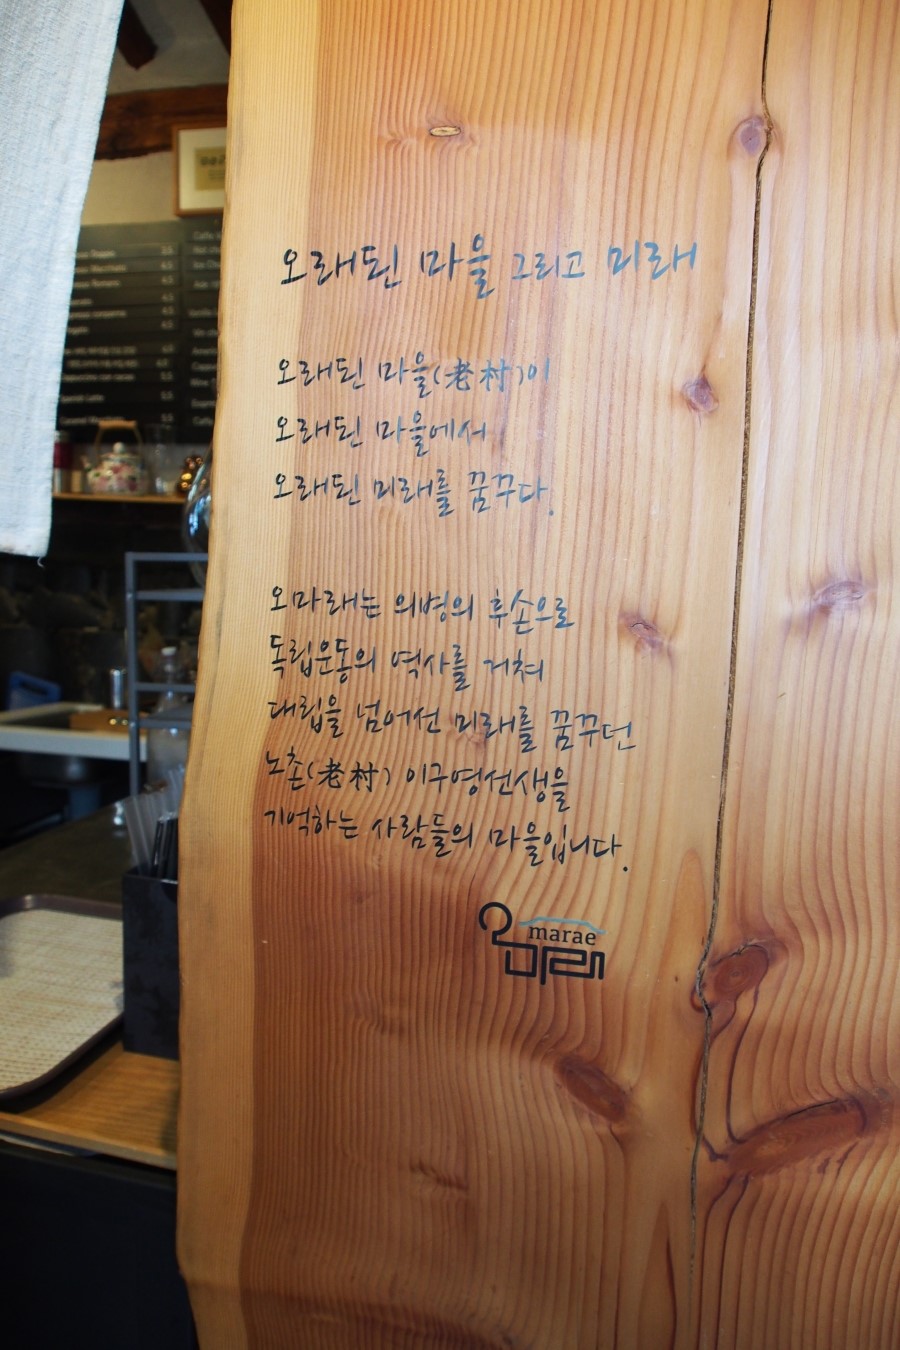 오래된 마을 그리고 미래
오래된 마을(老村)이
오래된 마을에서
오래된 미래를 꿈꾸다.
오마래는 의병의 후손으로
독립운동의 역사를 거쳐
대립을 넘어선 미래를 꿈꾸던
노촌(老村) 이구영선생을
기억하는 사람들의 마을입니다.
marae
오마래